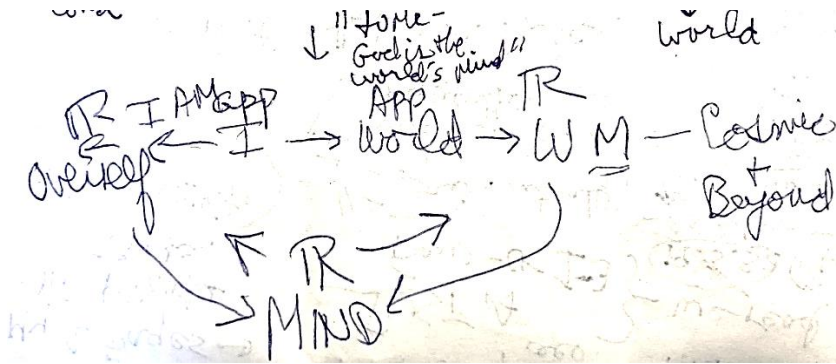 "to me-
God is the
world's mind"
world
TR I AM app
APP
TR
Overself ← I → World → W M — Cosmic
+
Beyond
TR
MIND